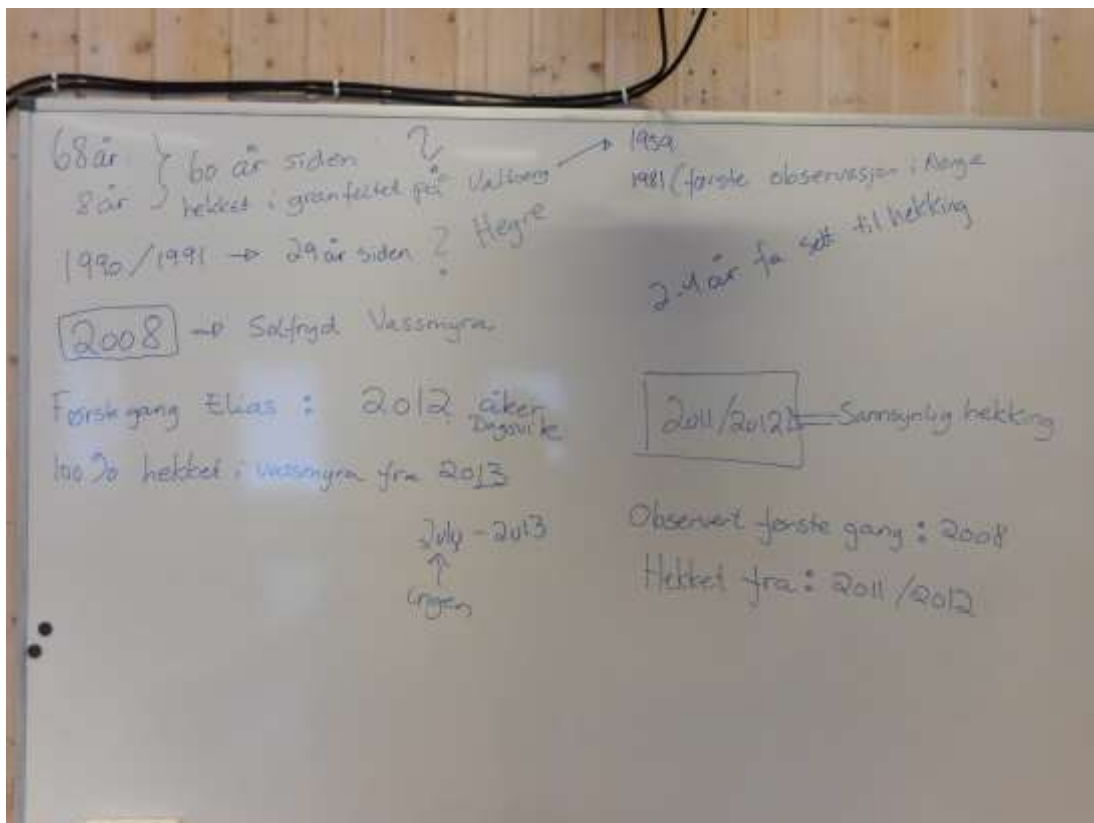 68 år } 60 år siden ?
8 år hekket i granfeltet på Valberg → 1959
1981 (første observasjon i Norge
1990/1991 → 29 år siden ? Hegre
2-4 år fra sett til hekking
2008 → Solfryd Vassmyra
Første gang Elias : 2012 åker
Dagsvik
100% hekket i Vassmyra fra 2013
July - 2013
↑
ungen
2011/2012 Sannsynlig hekking
Observert første gang : 2008
Hekket fra : 2011/2012